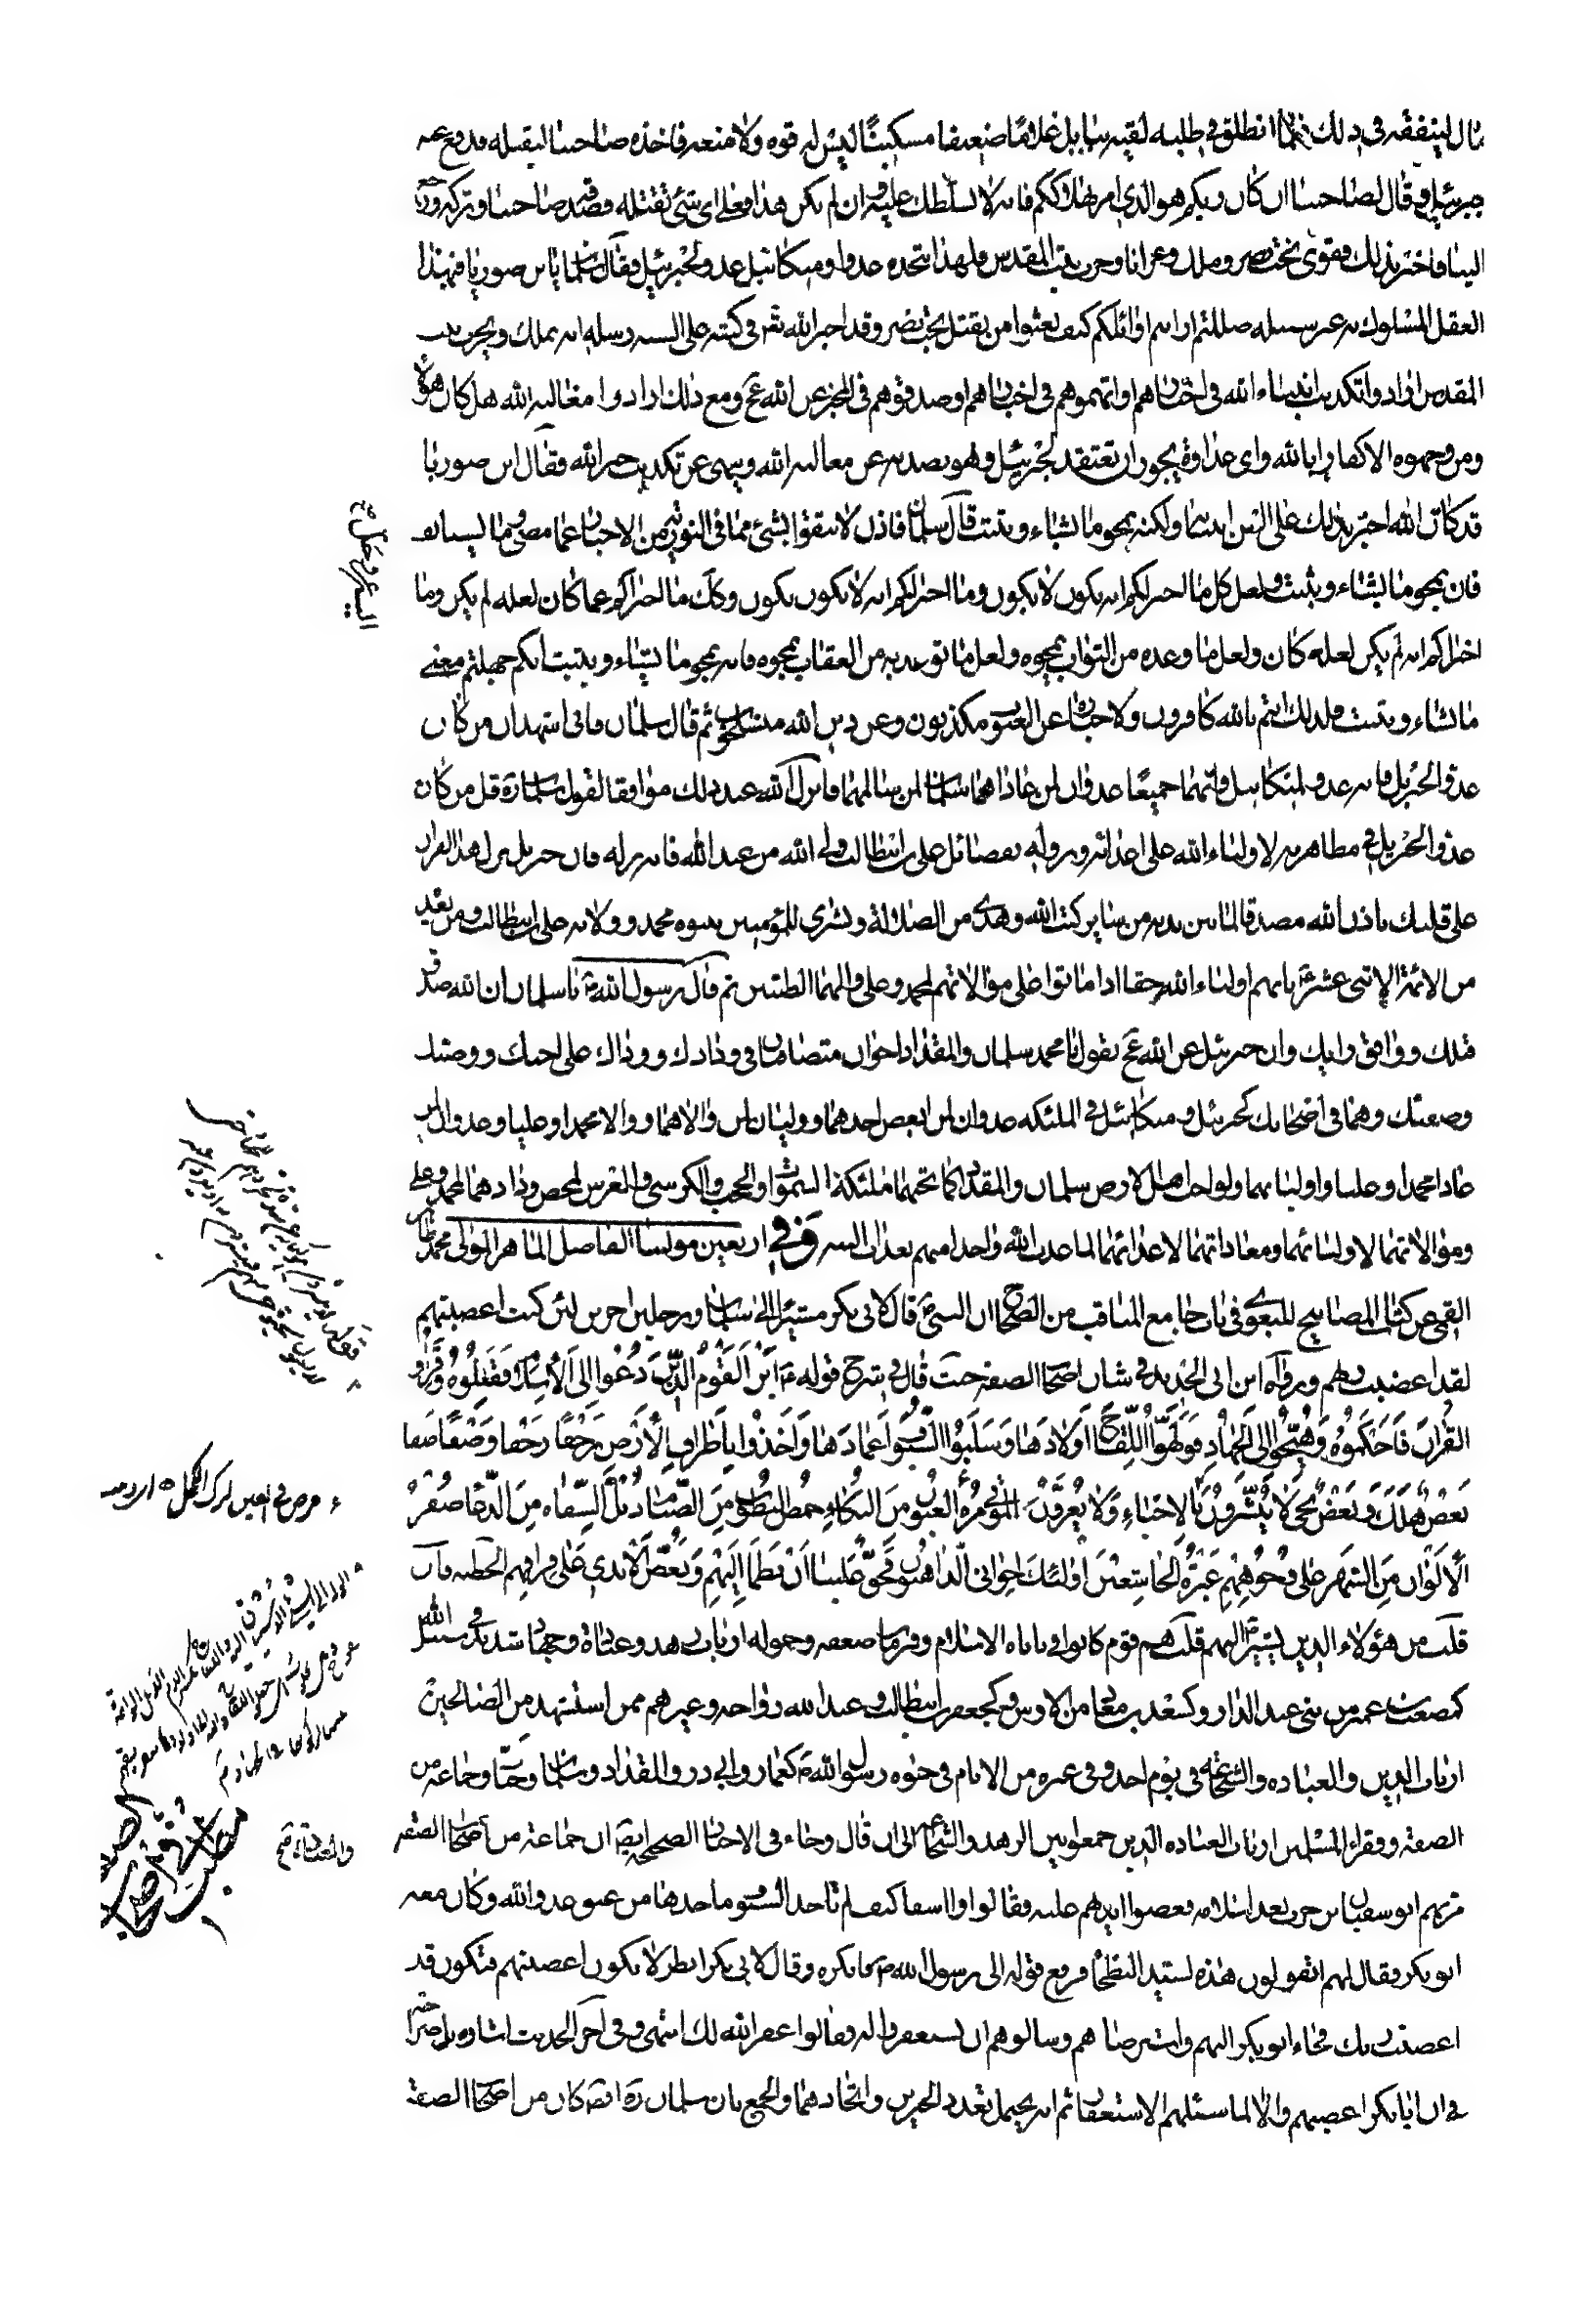 مال لينفقه في ذلك فلما انطلق في طلبه لقيه ببابل غلاما ضعيفا مسكينا ليس له قوة ولا منعة فاخذه صاحبنا ليقتله فدفع عنه
جبرئيل وقال لصاحبنا ان كان ربكم هو الذي امر بهلاككم فانه لا يسلطك عليه وان لم يكن هذا فعلى اي شئ تقتله فصدقه صاحبنا وتركه ورجع
الينا فاخبرنا بذلك وقوى بخت نصر وملك وغزانا وخرب بيت المقدس فلهذا نتخذه عدوا وميكائيل عدو لجبرئيل فقال سلمان يابن صوريا فبهذا
العقل المسلوك به غير سبيله ضللتم ارايتم اوائلكم كيف بعثوا من يقتل بخت نصر وقد اخبر الله تعالى في كتبه على السنة رسله انه يملك ويخرب بيت
المقدس ارادوا تكذيب انبياء الله في اخبارهم او اتهموهم في اخبارهم او صدقوهم في الخبر عن الله ومع ذلك ارادوا مغالبة الله هل كان هؤلاء
ومن وجهوه الا كفارا بالله واي عداوة يجوز ان تعتقد لجبرئيل وهو يصد به عن مغالبة الله وينهى عن تكذيب خبر الله فقال ابن صوريا
قد كان الله اخبر بذلك على السن انبيائه ولكنه يمحو ما يشاء ويثبت قال سلمان فاذن لا تثقوا بشئ مما في التورية من الاخبار عما مضى وما يستانف
فان يمحو ما يشاء ويثبت ولعل كل ما اخبراكم انه يكون لا يكون وما اخبراكم انه لا يكون يكون وكذلك ما اخبراكم عما كان لعله لم يكن وما
اخبراكم انه لم يكن لعله كان ولعل ما وعده من الثواب يمحوه ولعل ما توعد به من العقاب يمحوه فانه يمحو ما يشاء ويثبت انكم جهلتم معنى
ما يشاء ويثبت فلذلك انتم بالله كافرون ولاخباره عن الغيوب مكذبون وعن دين الله منسلخون ثم قال سلمان فاني اشهد ان من كان
عدوا لجبريل فانه عدو لميكائيل وانهما جميعا عدوان لمن عاداهما سلمان لمن سالمهما فانزل الله عند ذلك موافقا لقول سلمان ره قل من كان
عدوا لجبريل في مظاهرته لاولياء الله على اعدائه ونزوله بفضائل علي بن ابيطالب ولي الله من عند الله فانه نزله فان جبريل نزل هذا القران
على قلبك باذن الله مصدقا لما بين يديه من ساير كتب الله وهدى من الضلالة وبشرى للمؤمنين بنبوة محمد وولاية علي بن ابيطالب ومن بعده
من الائمة الاثني عشر بانهم اولياء الله حقا اذا ماتوا على موالاتهم لمحمد وعلي والهما الطيبين ثم قال رسول الله يا سلمان ان الله صدق
قيلك ووافق رايك وان جبرئيل عن الله يقول يا محمد سلمان والمقداد اخوان متصافيان في ودادك ووداد علي اخيك ووصيك
وصفيك وهما في اصحابك كجبرئيل وميكائيل في الملئكة عدوان لمن ابغض احدهما ووليان لمن والاهما ووالى محمدا وعليا وعدوان لمن
عادا محمدا وعليا واولياءهما ولو احب اهل الارض سلمان والمقداد كما تحبهما ملئكة السموات والحجب والكرسي والعرش لمحض ودادهما لمحمد وعلي
وموالاتهما لاوليائهما ومعاداتهما لاعدائهما لما عذب الله واحدا منهم بعذاب البتة وفي اربعين مولينا الفاضل الماهر المولى محمد طاهر
القمي عن كتاب المصابيح للبغوي في باب جامع المناقب من الصحاح ان النبي ص قال لابي بكر مشيرا الى سلمان ورجلين اخرين لئن كنت اغضبتهم
لقد اغضبت ربهم ورواه ابن ابي الحديد في شان اصحاب الصفة حيث قال في شرح قوله اين القوم الذين دعوا الى الاسلام فقبلوه وقراوا
القران فاحكموه وهيجوا الى الجهاد فولهوا اللقاح اولادها وسلبوا السيوف اغمادها واخذوا باطراف الارض زحفا زحفا وصفا صفا
بعض هلك وبعض نجى لا يبشرون بالاحياء ولا يعزون الموتى مره العيون من البكاء خمص البطون من الصيام ذبل الشفاه من الدعا صفر
الالوان من السهر على وجوههم غبرة الخاشعين اولئك اخواني الذاهبون فحق علينا ان نظما اليهم ونعض الايدي على فراقهم الخطبة فان
قلت من هؤلاء الذين يشير اليهم قلت هم قوم كانوا في ناناة الاسلام وفي زمان ضعفه وخموله ارباب زهد وعبادة وجهاد شديد في سبيل الله
كمصعب بن عمير من بني عبد الدار وكسعد بن معاذ من الاوس وكجعفر بن ابيطالب وعبد الله بن رواحه وغيرهم ممن استشهد من الصالحين
ارباب الدين والعبادة والشجاعة في يوم احد وفي غيره من الايام في حيوة رسول الله ص كعمار وابي ذر والمقداد وسلمان وخباب وجماعة من
الصفة وفقراء المسلمين ارباب العبادة الذين جمعوا بين الزهد والشجاعة الى ان قال وجاء في الاخبار الصحيحة ايضا ان جماعة من اصحاب الصفة
مر بهم ابو سفيان بن حرب بعد اسلامه فعضوا ايديهم عليه فقالوا وااسفا كيف لم تاخذ السيوف ماخذها من عنق عدو الله وكان معه
ابو بكر فقال لهم اتقولون هذا لسيد البطحا فرفع قوله الى رسول الله ص فانكره وقال لابي بكر انظر لا تكون اغضبتهم فتكون قد
اغضبت ربك فجاء ابو بكر اليهم واسترضاهم وسالوهم ان يستغفروا له فقالوا غفر الله لك انتهى وفي آخر الحديث اشارة بل صراحة
في ان ابا بكر اغضبهم والا لما سئلهم الاستغفار ثم انه يحتمل تعدد الخبرين واتحادهما والجمع بان سلمان ره ايضا كان من اصحاب الصفة